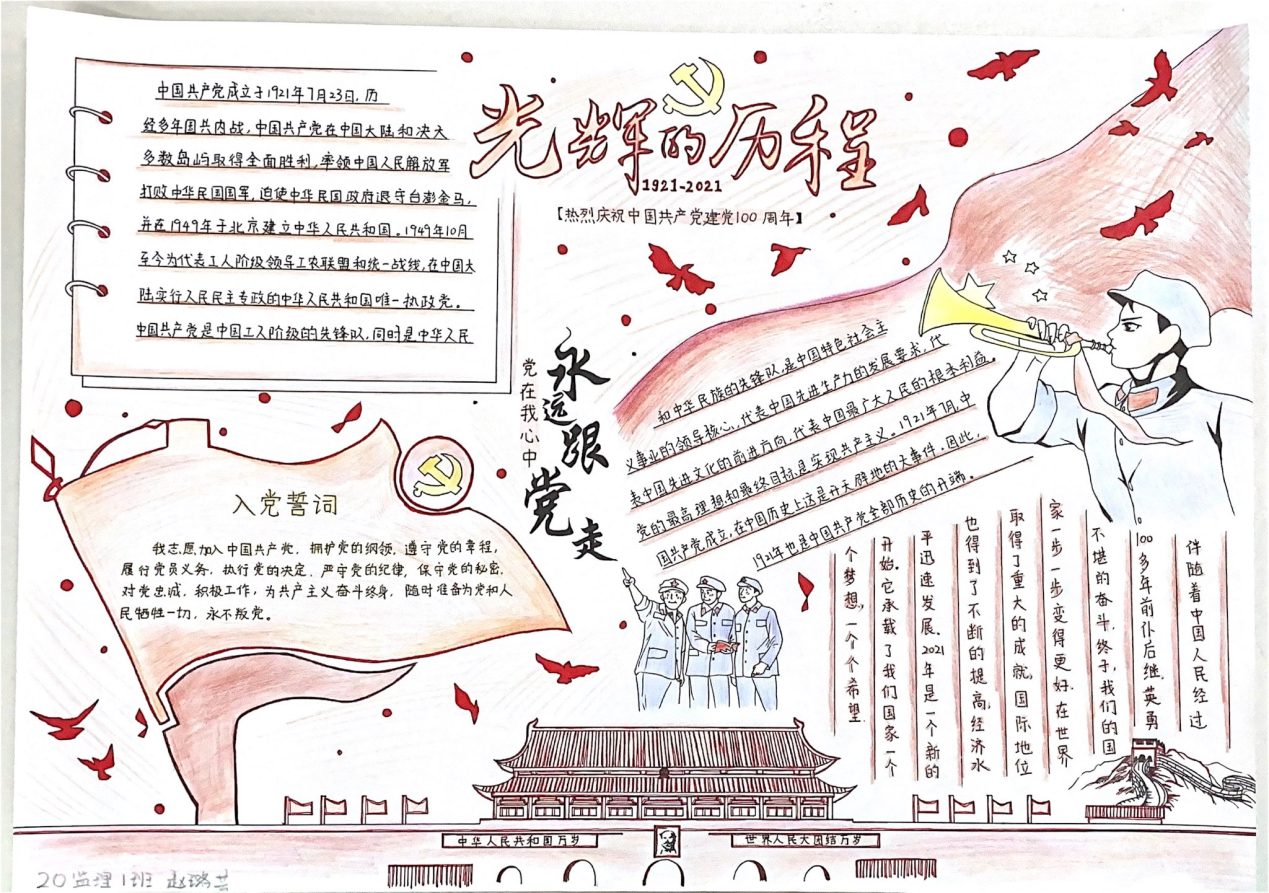 光辉的历程
1921-2021
【热烈庆祝中国共产党建党100周年】
中国共产党成立于1921年7月23日,历
经多年国共内战,中国共产党在中国大陆和决大
多数岛屿取得全面胜利,率领中国人民解放军
打败中华民国国军,迫使中华民国政府退守台澎金马,
并在1949年于北京建立中华人民共和国。1949年10月
至今为代表工人阶级领导工农联盟和统一战线,在中国大
陆实行人民民主专政的中华人民共和国唯一执政党。
中国共产党是中国工人阶级的先锋队,同时是中华人民
和中华民族的先锋队,是中国特色社会主
义事业的领导核心,代表中国先进生产力的发展要求,代
表中国先进文化的前进方向,代表中国最广大人民的根本利益。
党的最高理想和最终目标是实现共产主义。1921年7月,中
国共产党成立,在中国历史上这是开天辟地的大事件。因此,
1921年也是中国共产党全部历史的开端。
党在我心中
永远跟党走
入党誓词
我志愿加入中国共产党,拥护党的纲领,遵守党的章程,
履行党员义务,执行党的决定,严守党的纪律,保守党的秘密,
对党忠诚,积极工作,为共产主义奋斗终身,随时准备为党和人
民牺牲一切,永不叛党。
伴随着中国人民经过
100多年前仆后继,英勇
不堪的奋斗,终于,我们的国
家一步一步变得更好,在世界
取得了重大的成就,国际地位
也得到了不断的提高,经济水
平迅速发展。2021年是一个新的
开始。它承载了我们国家一个
个梦想,一个个希望
中华人民共和国万岁
世界人民大团结万岁
20监理1班 赵璐芸